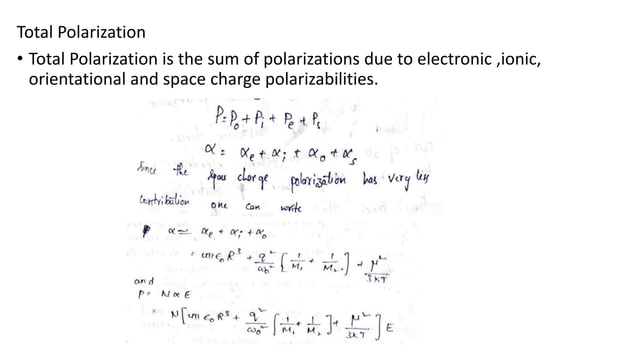 Total Polarization
• Total Polarization is the sum of polarizations due to electronic ,ionic,
orientational and space charge polarizabilities.
P = P₀ + Pᵢ + Pₑ + Pₛ
α = αₑ + αᵢ + α₀ + αₛ
Since the space charge polarization has very less
contribution one can write
α ≃ αₑ + αᵢ + α₀
= 4πϵ₀R³ + q²/ω₀² [1/M₁ + 1/M₂] + μ²/3kT
and
P = NαE
= N[4πϵ₀R³ + q²/ω₀² [1/M₁ + 1/M₂] + μ²/3kT] E